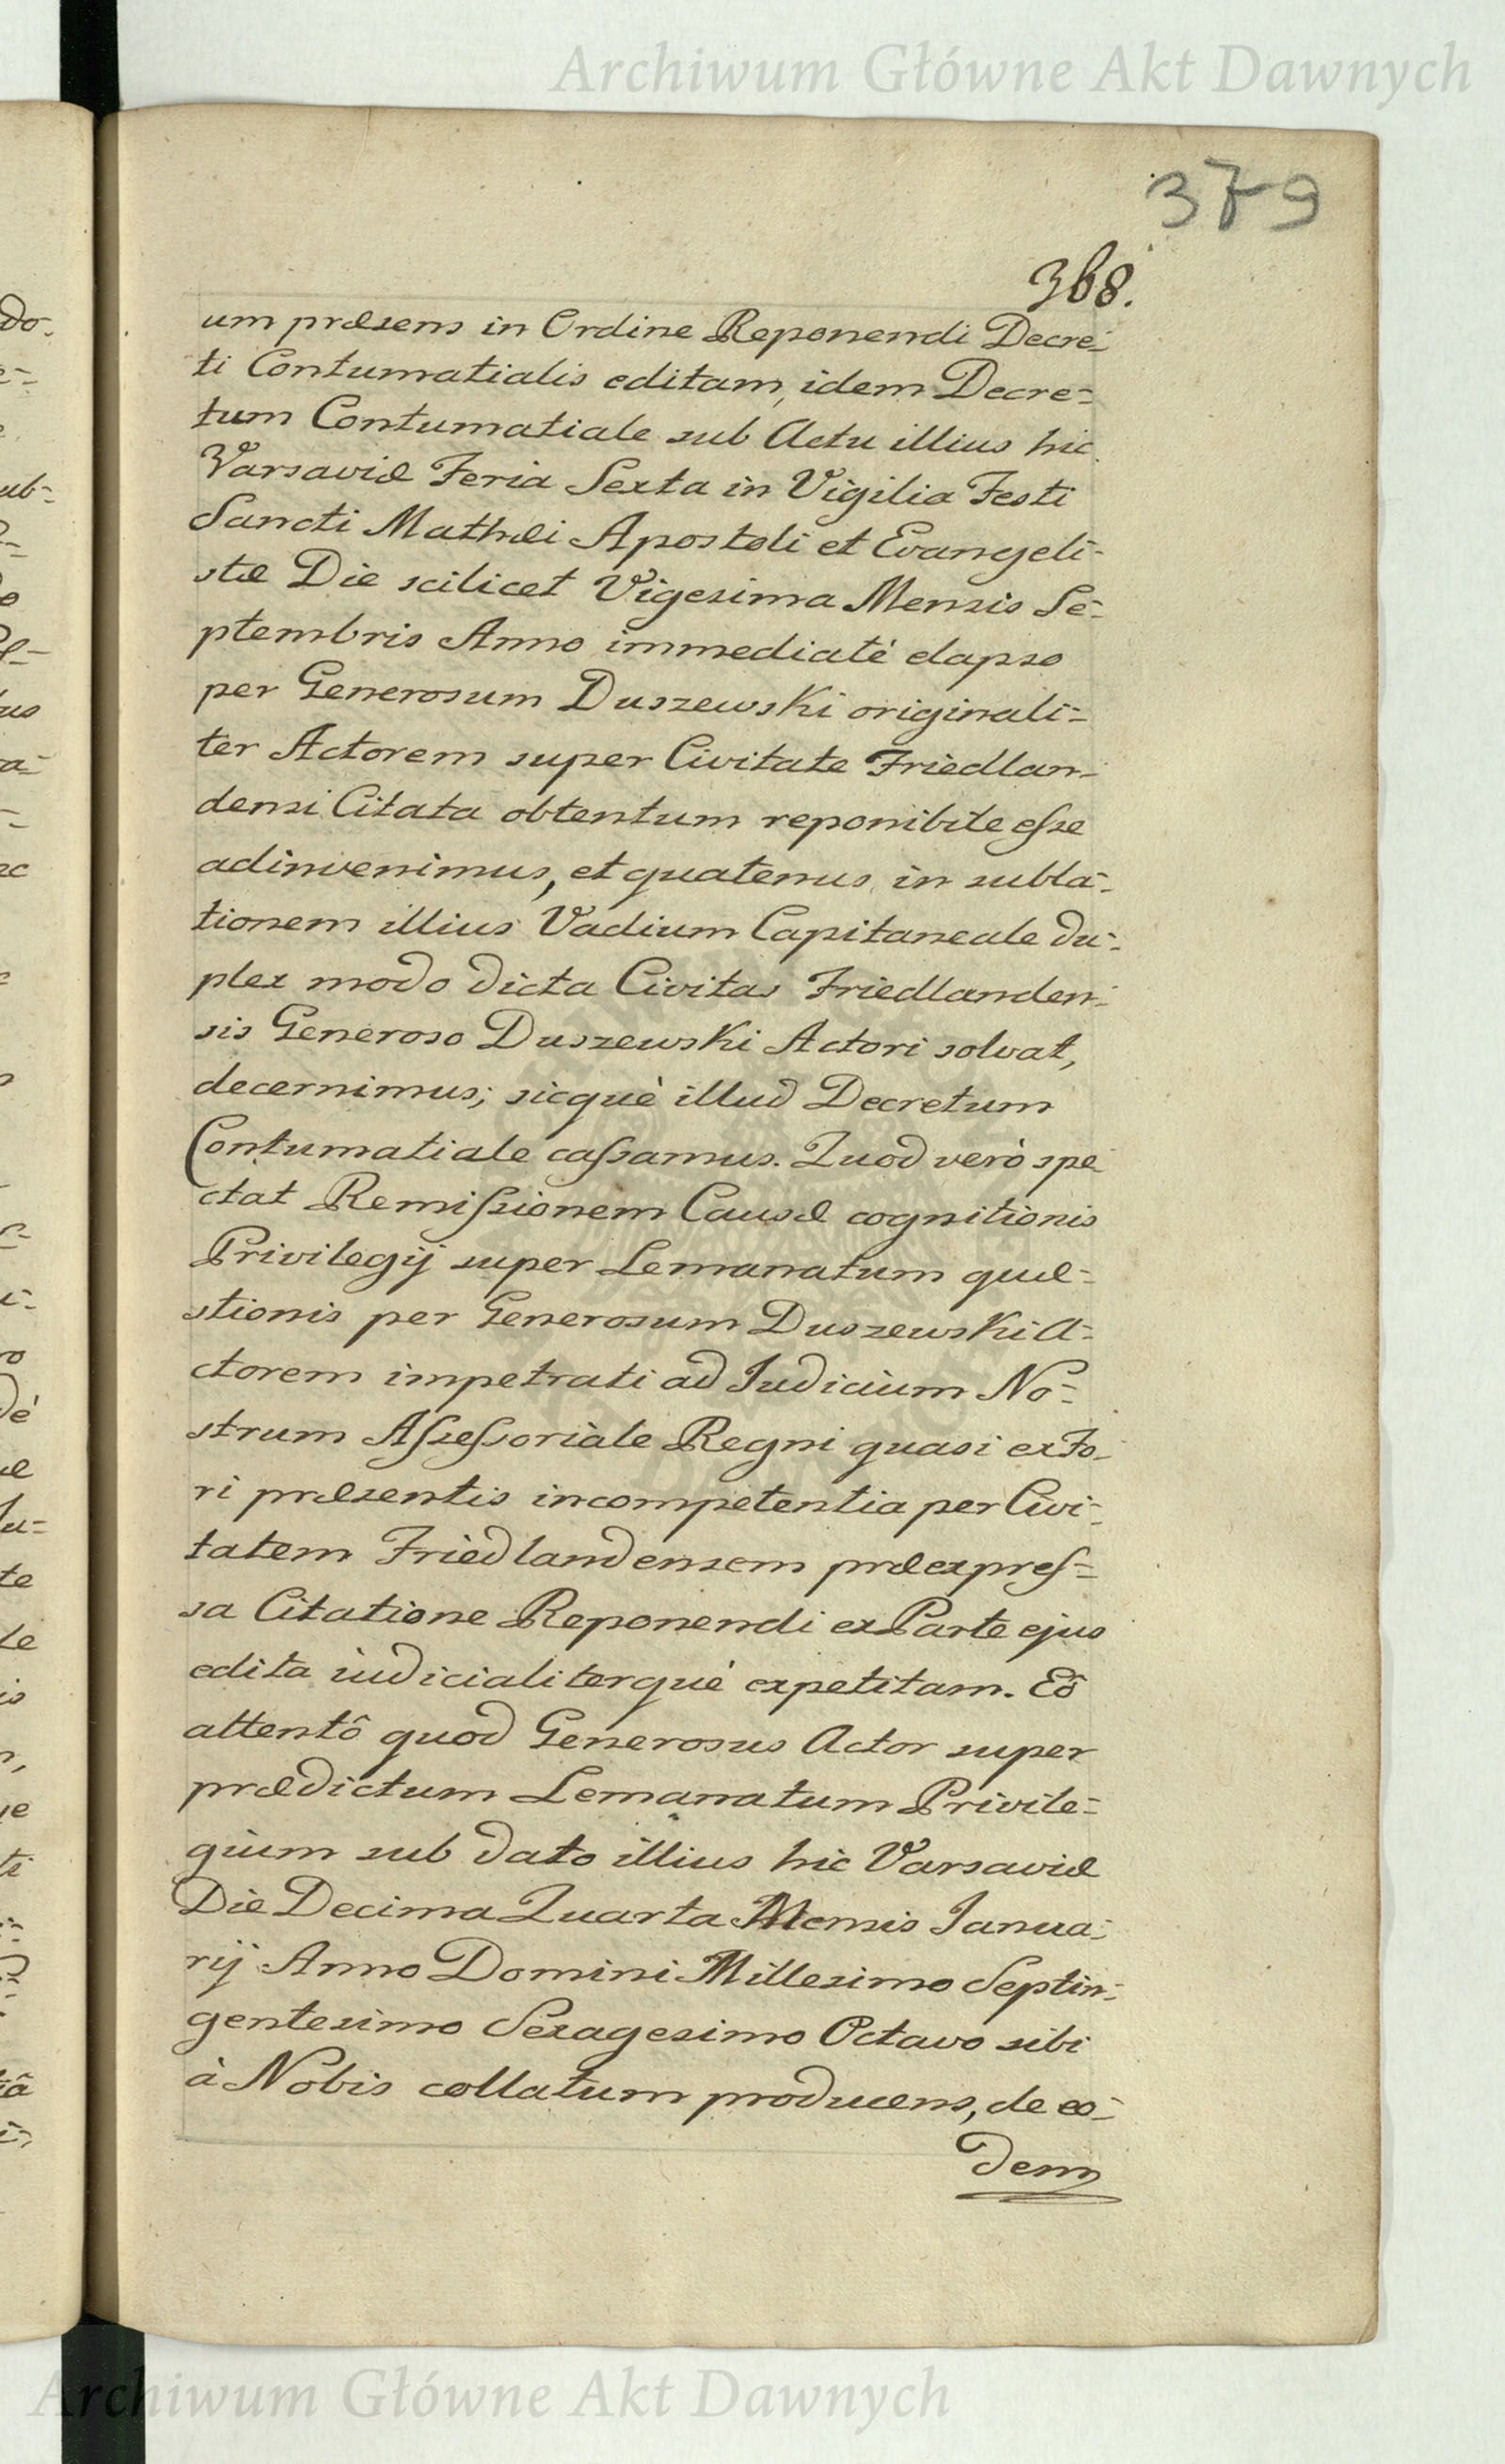 Archiwum Główne Akt Dawnych
379
368.
um præsens in Ordine Reponendi Decre-
ti Contumatialis editam, idem Decre-
tum Contumatiale sub Actu illius hic
Varsaviæ Feria Sexta in Vigilia Festi
Sancti Mathæi Apostoli et Evangeli-
stæ Die scilicet Vigesima Mensis Se-
ptembris Anno immediatè elapso
per Generosum Duszewski originali-
ter Actorem super Civitate Friedlan-
densi Citata obtentum reponibile eſse
adinvenimus, et quatenus in subla-
tionem illius Vadium Capitaneale du-
plex modo dicta Civitas Friedlanden-
sis Generoso Duszewski Actori solvat,
decernimus; sicquè illud Decretum
Contumatiale caſsamus. Quod verò spe-
ctat Remiſsionem Causæ cognitionis
Privilegij super Lemanatum quæ-
stionis per Generosum Duszewski A-
ctorem impetrati ad Iudicium No-
strum Aſseſsoriale Regni quasi ex Fo-
ri præsentis incompetentia per Civi-
tatem Friedlandensem præexpreſ-
sa Citatione Reponendi ex Parte ejus
edita iudicialiterquè expetitam. Eô
attentô quod Generosus Actor super
prædictum Lemanatum Privile-
gium sub dato illius hic Varsaviæ
Die Decima Quarta Mensis Ianua-
rij Anno Domini Millesimo Septin-
gentesimo Sexagesimo Octavo sibi
à Nobis collatum producens, de eo-
dem
Archiwum Główne Akt Dawnych